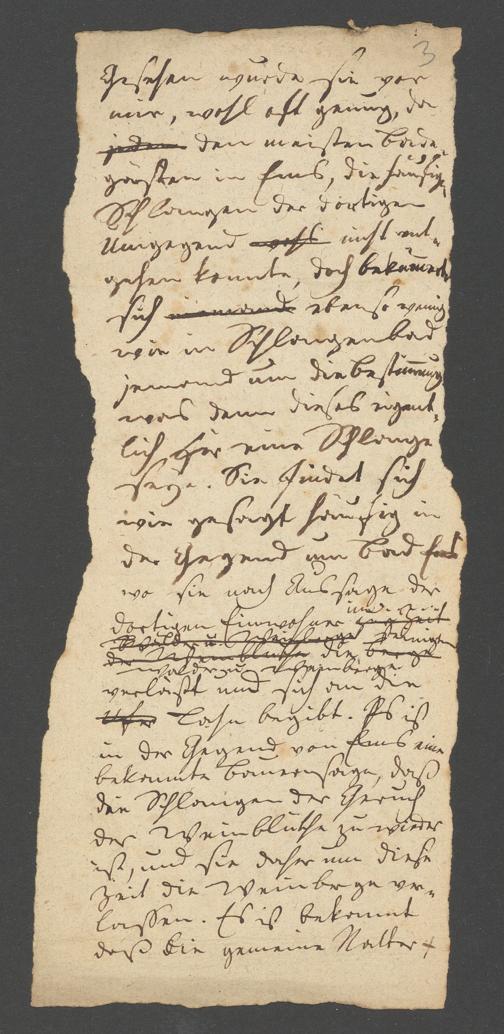 3
Gesehen wurde sie vor
mir, wohl oft genug, da
jedem den meisten Bade-
gästen in Ems, die häufig
Schlangen der dortigen
Umgegend nicht ent-
gehen konnte, doch bekümert
sich niemand ebenso wenig
wie in Schlangenbad
jemand um die bestimmung
was denn dieses eigent-
lich für eine Schlange
seye. Sie findet sich
wie gesagt häufig in
der Gegend um Bad Ems
wo sie nach Aussage der
dortigen Einwohner
Wälder u. Weinberge
der Weinblüthe die Berge
Wälder u. Weinberge
verläßt und sich an die
Ufer Lahn begibt. Es ist
in der Gegend von Ems eine
bekannte Bauernsage, daß
den Schlangen der Geruch
der Weinblüthe zu wieder
ist, und sie daher um diese
Zeit die Weinberge ver-
lassen. Es ist bekannt
daß die gemeine Natter +